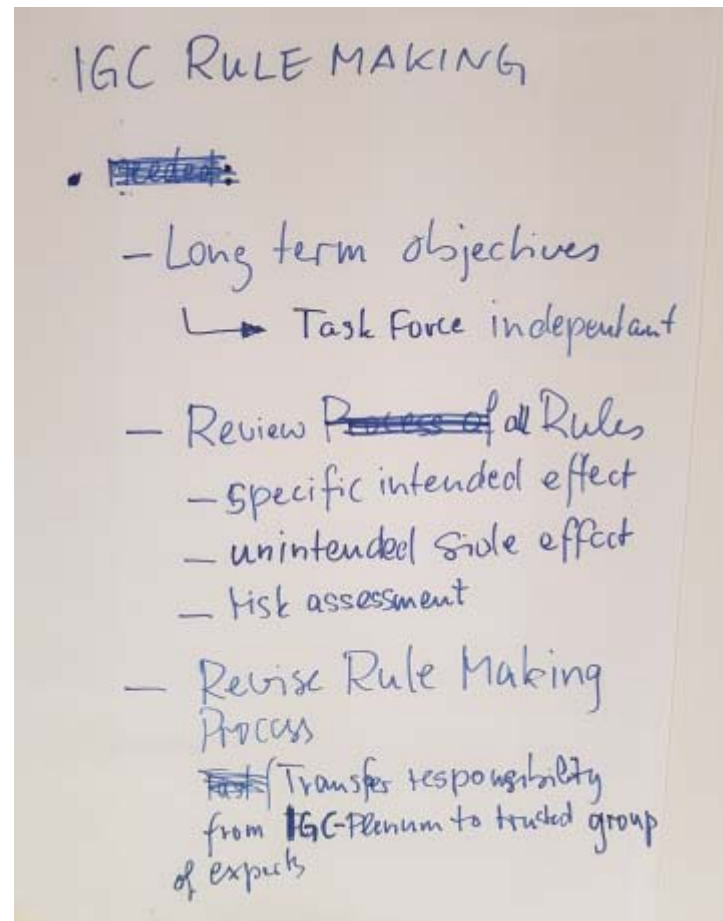 IGC RULE MAKING
• needed:
- Long term objectives
↳ Task Force independant
- Review Process of all Rules
- Specific intended effect
- unintended side effect
- risk assessment
- Revise Rule Making
Process
Task Transfer responsibility
from IGC-Plenum to trusted group
of experts